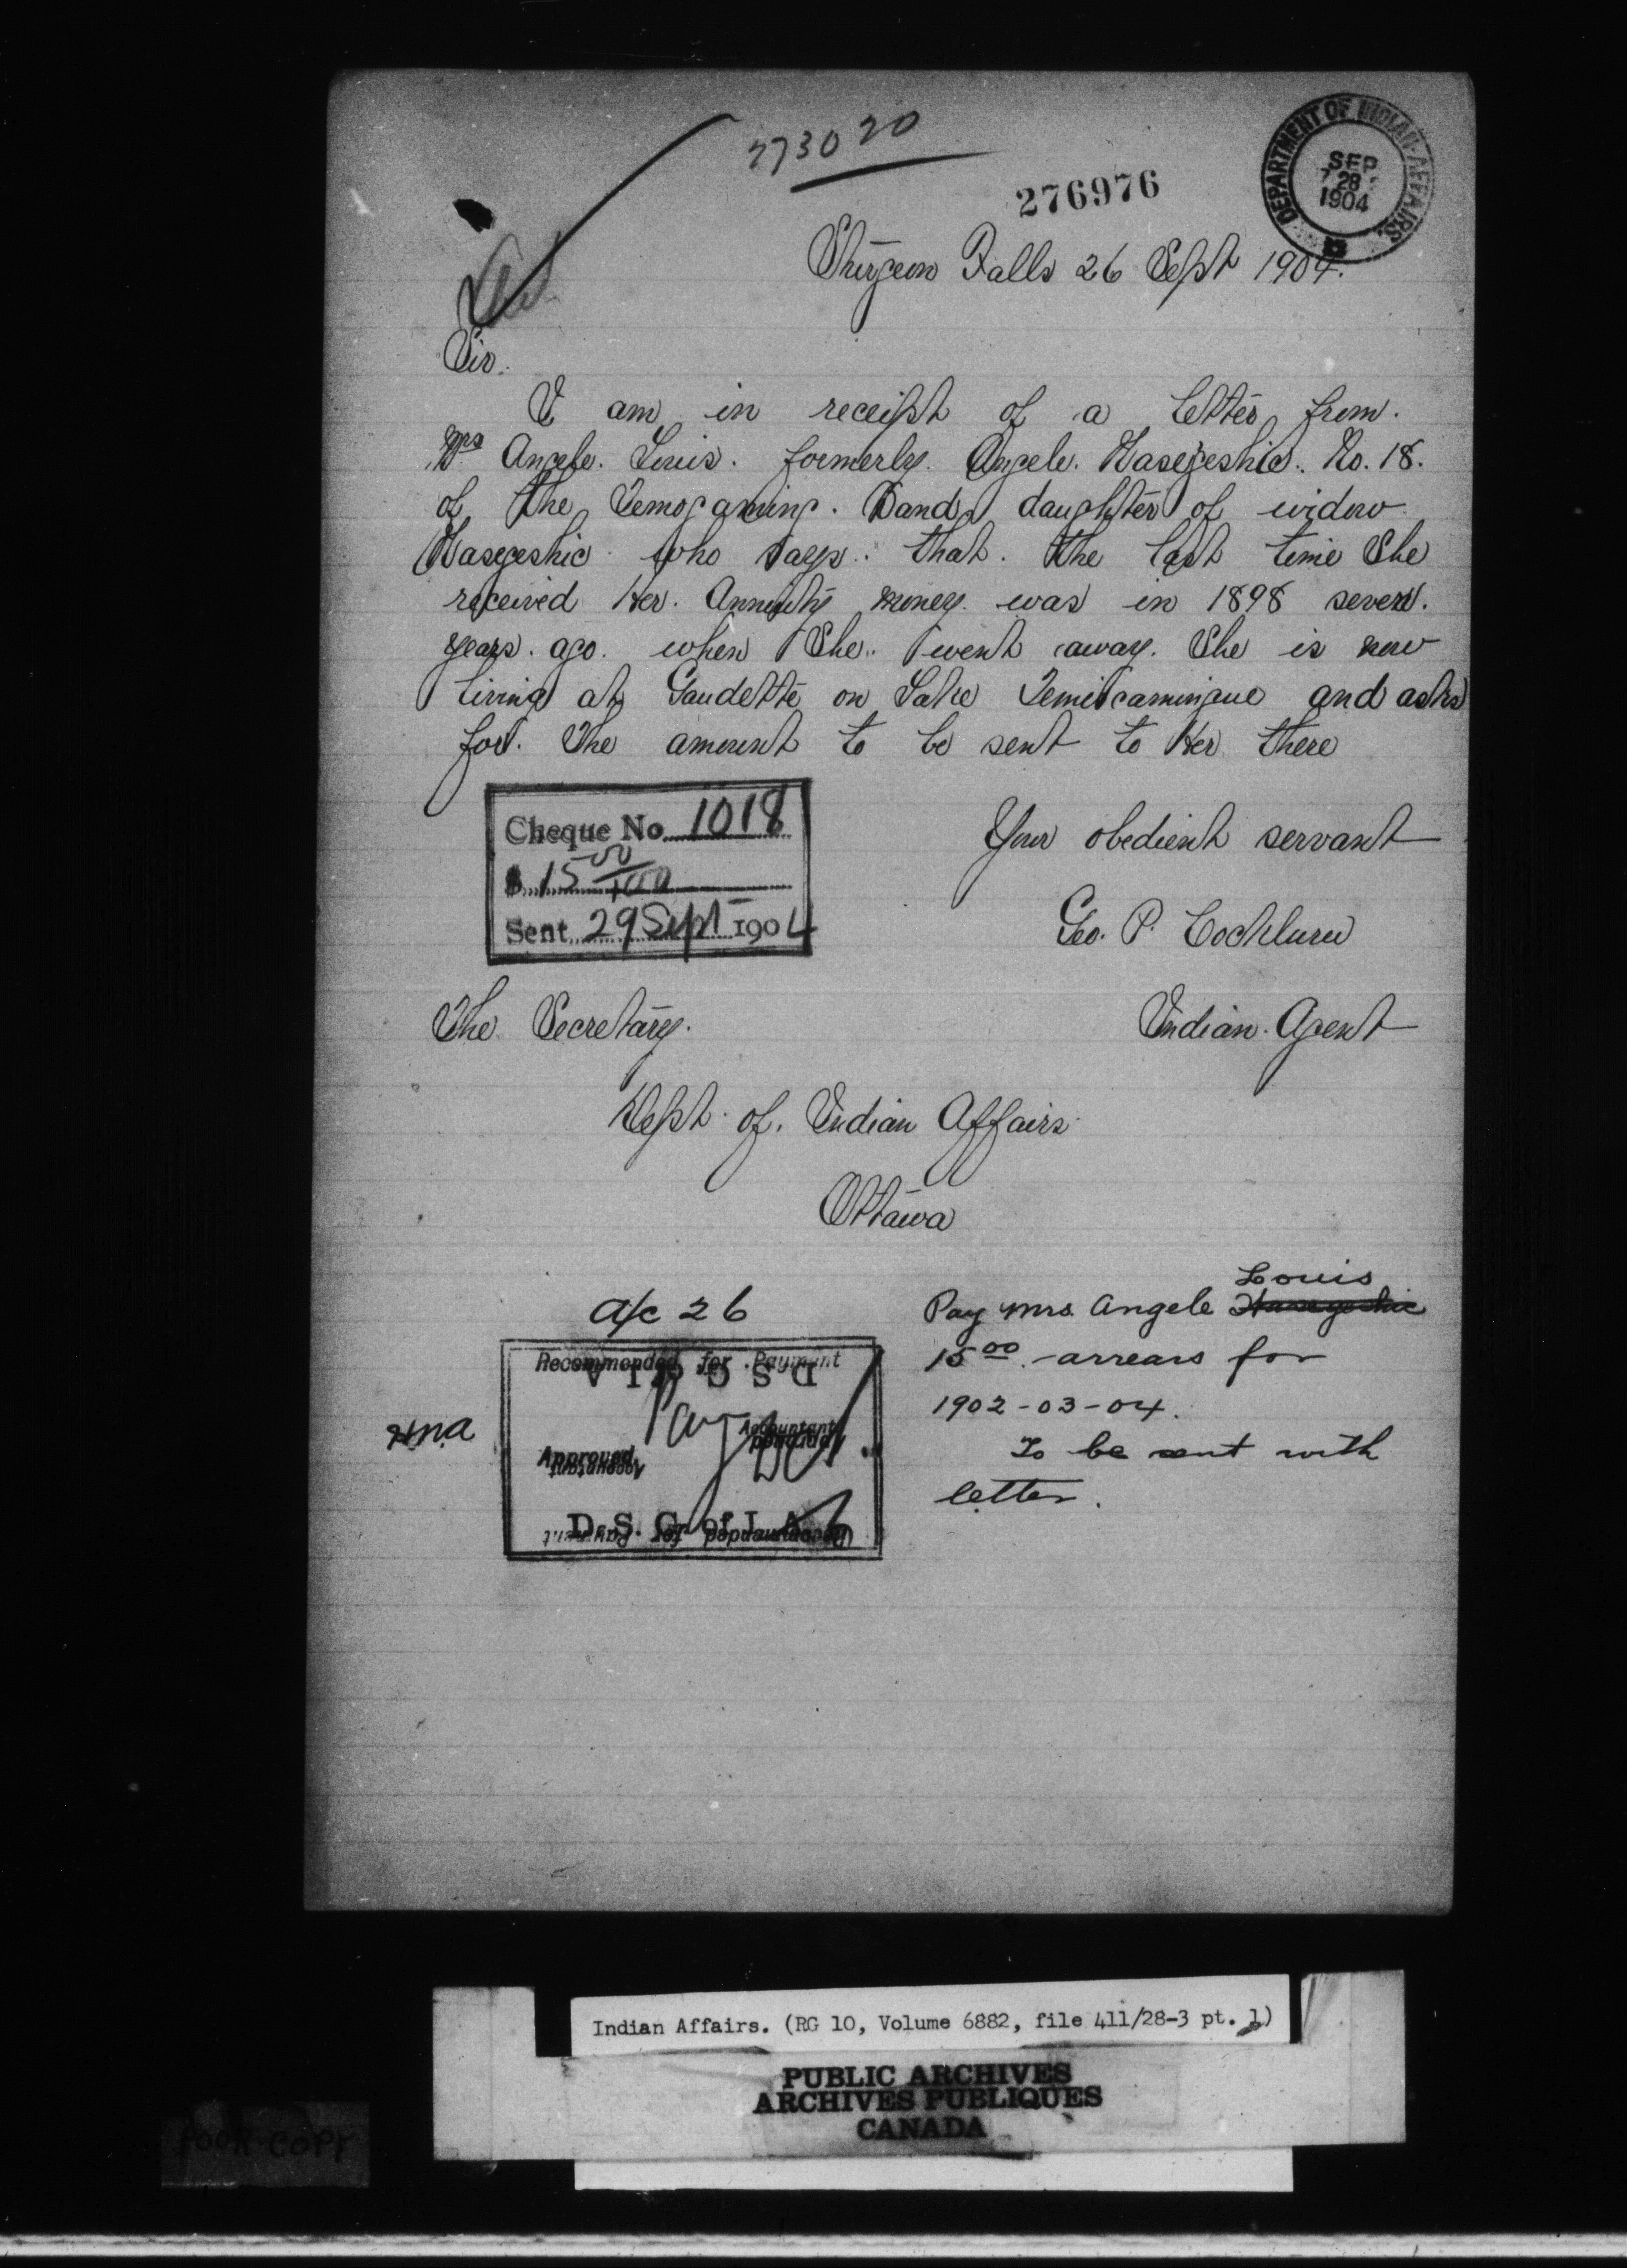 273020
276976
DEPARTMENT OF INDIAN AFFAIRS.
SEP
28
1904
Sturgeon Falls 26 Sept 1904.
Sir.
I am in receipt of a letter from.
Mrs Angele. Louis. formerly. Angele. Wasegeshic.. No. 18.
of the Temogaming. Band daughter of widow
Wasegeshic who says.. that. the last time She
received Her. Annuity money. was in 1898 seven.
years. ago. when She.. went away. She is now
living at Gaudette on Lake Temiscamingue and asks
for. The amount to be sent to Her there
Cheque No. 1018
$ 15 00/100
Sent 29 Sept 1904
Your obedient servant
Geo. P. Cockburn
Indian. Agent
The Secretary.
Dept. of. Indian Affairs
Ottawa
a/c 26
Recommended for Payment
Accountant
Approved
D. S. G. of I. A.
Pay Mrs. Angele Wasegeshic Louis
15 00. - arrears for
1902-03-04.
To be sent with
letter.
Indian Affairs. (RG 10, Volume 6882, file 411/28-3 pt. 1)
PUBLIC ARCHIVES
ARCHIVES PUBLIQUES
CANADA
POOR COPY